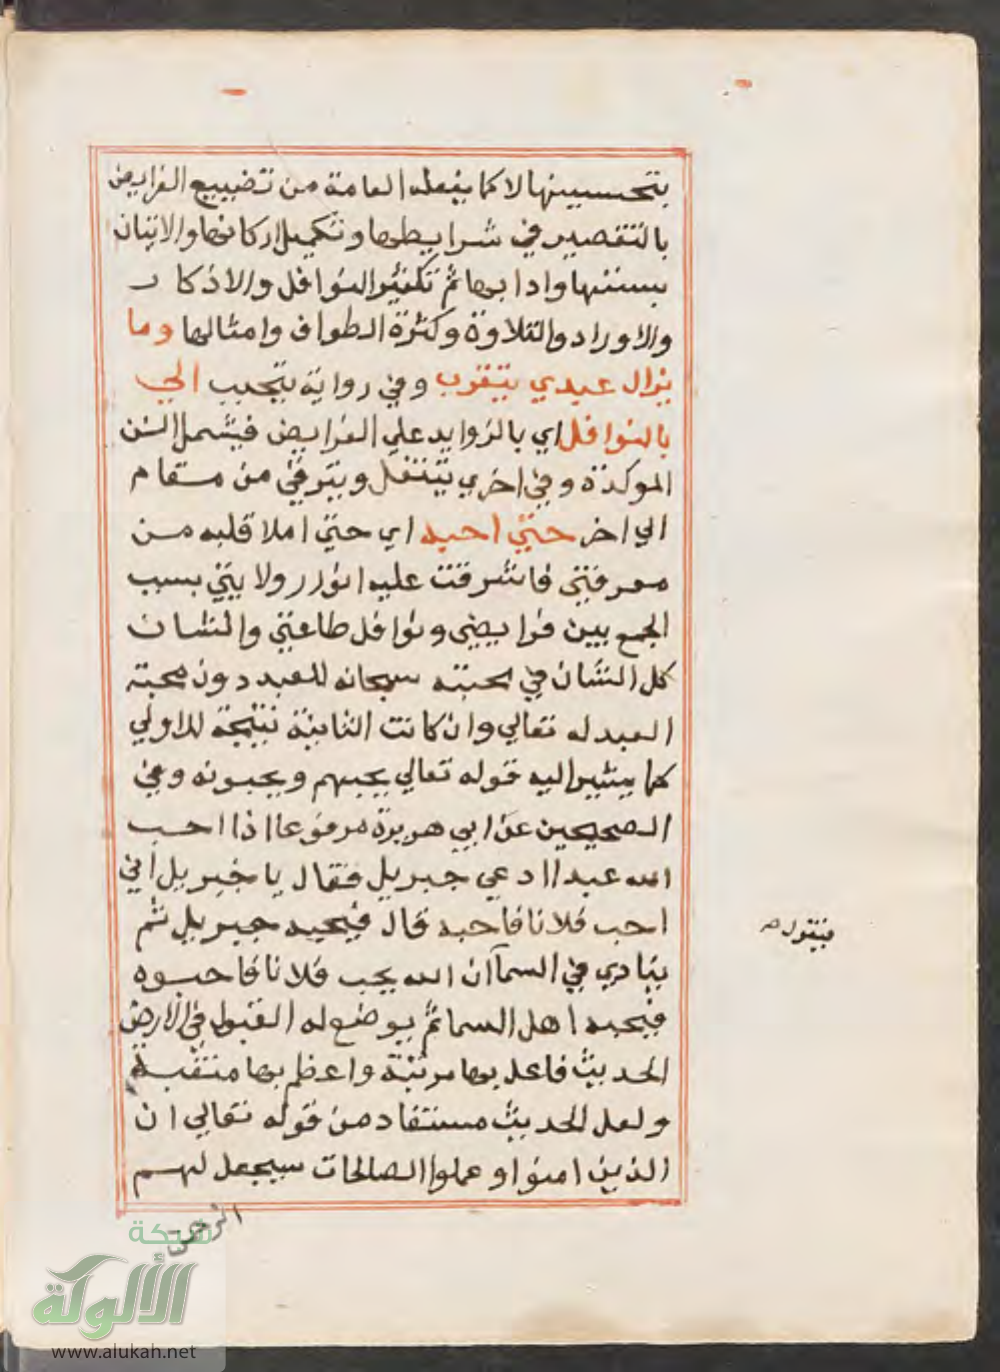 بتحسينها لا كما يفعله العامة من تضييع الفرايض
بالتقصير في شرايطها وتكميل اركانها والاتيان
بسننها وادابها ثم تكثير النوافل والاذكار
والاوراد والتلاوة وكثرة الطواف وامثالها وما
يزال عبدي يتقرب وفي رواية يتحبب الي
بالنوافل اي بالزوايد علي الفرايض فيشمل السنن
الموكدة وفي اخري يتنفل ويترقي من مقام
الي اخر حتي احبه اي حتي املا قلبه من
معرفتي فاشرقت عليه انوار ولايتي بسبب
الجمع بين فرايضي ونوافل طاعتي والشان
كل الشان في محبته سبحانه للعبد دون محبة
العبد له تعالي وان كانت الثانية نتيجة للاولي
كما يشير اليه قوله تعالي يحبهم ويحبونه وفي
الصحيحين عن ابي هريرة مرفوعا اذا احب
الله عبدا ادعي جبريل فقال يا جبريل اني
احب فلانا فاحبه قال فيحبه جبريل ثم
ينادي في السمآ ان الله يحب فلانا فاحبوه
فيحبه اهل السما ثم يوضع له القبول في الارض
الحديث فاعل بها مرتبة واعظم بها منقبة
ولعل الحديث مستفاد من قوله تعالي ان
الذين امنوا وعملوا الصالحات سيجعل لهم
الرحمن
فيقول صح
شبكة
الألوكة
www.alukah.net